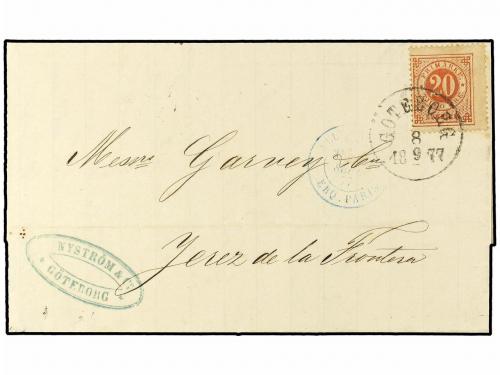 FRIMÄRKE
20
GÖTEBORG
8
18 9 77
Messrs Garvey & Co
ERQ. PARIS
Jerez de la Frontera
NYSTRÖM & Co
GÖTEBORG